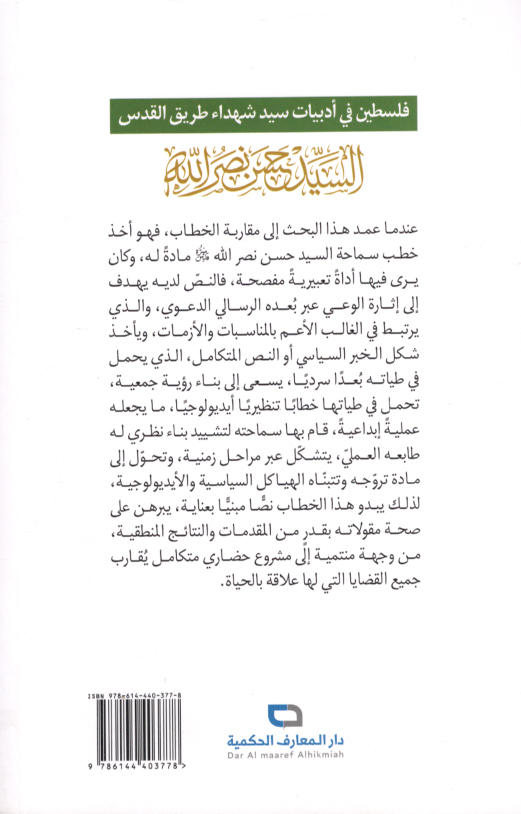 فلسطين في أدبيات سيد شهداء طريق القدس
السيد حسن نصر الله
عندما عمد هذا البحث إلى مقاربة الخطاب، فهو أخذ
خطب سماحة السيد حسن نصر الله مادةً له، وكان
يرى فيها أداةً تعبيريةً مفصحة، فالنصّ لديه يهدف
إلى إثارة الوعي عبر بُعده الرسالي الدعوي، والذي
يرتبط في الغالب الأعم بالمناسبات والأزمات، ويأخذ
شكل الخبر السياسي أو النص المتكامل، الذي يحمل
في طياته بُعدًا سرديًا، يسعى إلى بناء رؤية جمعية،
تحمل في طياتها خطابًا تنظيريًا أيديولوجيًا، ما يجعله
عمليةً إبداعيةً، قام بها سماحته لتشييد بناء نظري له
طابعه العمليّ، يتشكّل عبر مراحل زمنية، وتحوّل إلى
مادة تروّجه وتتبنّاه الهياكل السياسية والأيديولوجية،
لذلك يبدو هذا الخطاب نصًّا مبنيًّا بعناية، يبرهن على
صحة مقولاته بقدرٍ من المقدمات والنتائج المنطقية،
من وجهة منتمية إلى مشروع حضاري متكامل يُقارب
جميع القضايا التي لها علاقة بالحياة.
ISBN 978-614-440-377-8
9 786144 403778>
دار المعارف الحكمية
Dar Al maaref Alhikmiah